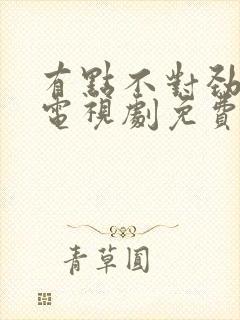 有點不對勁
電視劇免費
青草圓